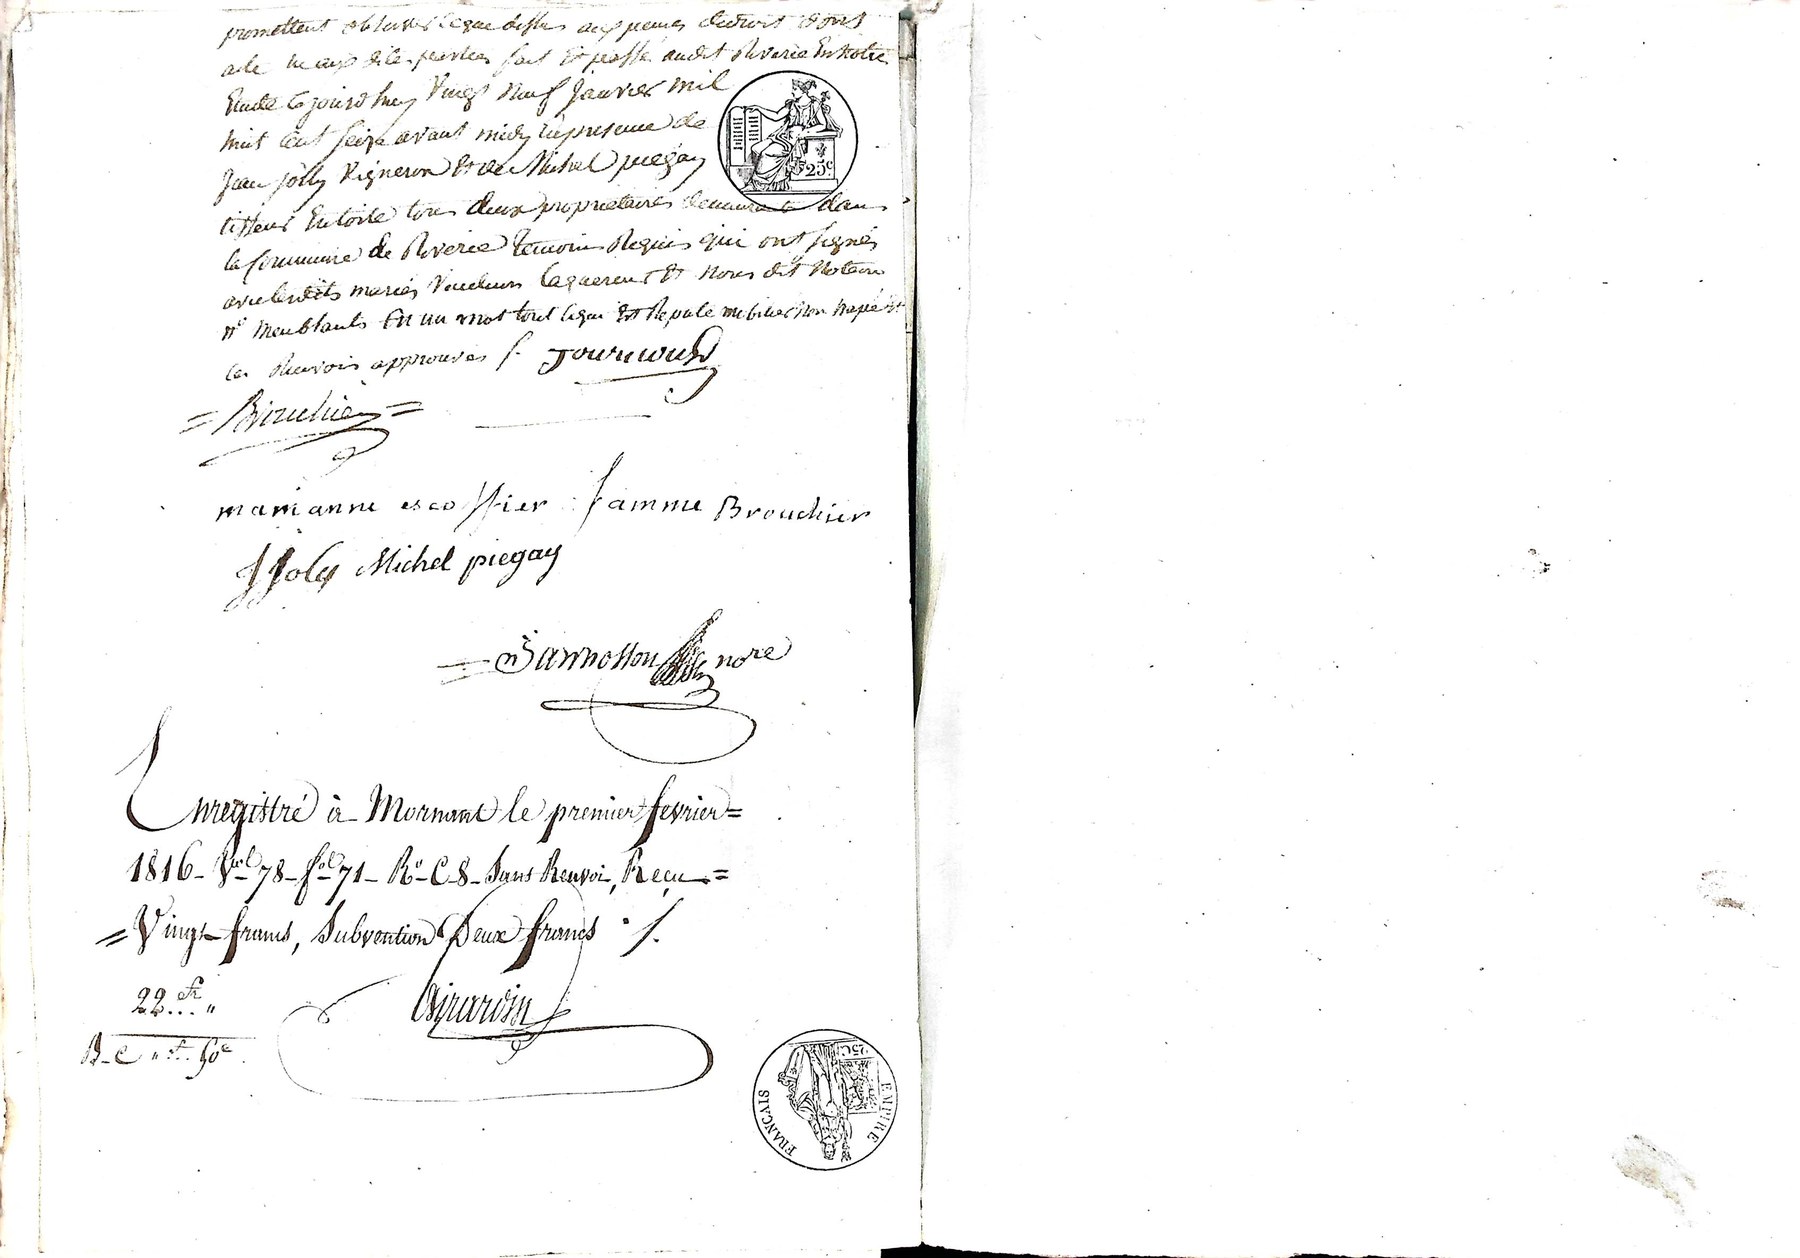 promettent observer ce que dessus aux peines de droit dont
acte lu aux dites parties fait et passé audit Riverie En notre
Etude cejourd'huy Vingt Neuf Janvier mil
huit cent seize avant midy En presence de
Jean Joly Vigneron Et de Michel piegay
tisseur En toile tous deux proprietaires demeurant dans
la Commune de Riverie temoins Requis qui ont signés
avec lesdits mariés Vendeurs l'aquereur Et Nous dit Notaire
meublants En un mot tout ce qui Est Reputé mobilier Non
ces Renvois approuvés
= Brouchier =
marianne escoffier famme Brouchier
JJoly Michel piegay
nore
Enregistré à Mornant le premier fevrier =
1816 - Vol 78 - fol 71 - Ro - C 8 - Sans Renvoi, Reçu =
= Vingt francs, Subvention Deux francs
22 fr "
B - C " f 50c
Girardin
25c
25C
EMPIRE
FRANÇAIS